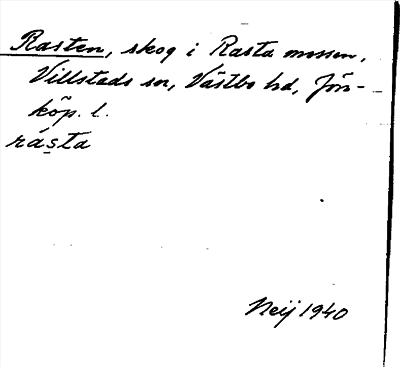 Rasten, skog i Rasta mossen,
Villstads sn, Västbo hd, Jön-
köp. l.
rásta
Neij 1940